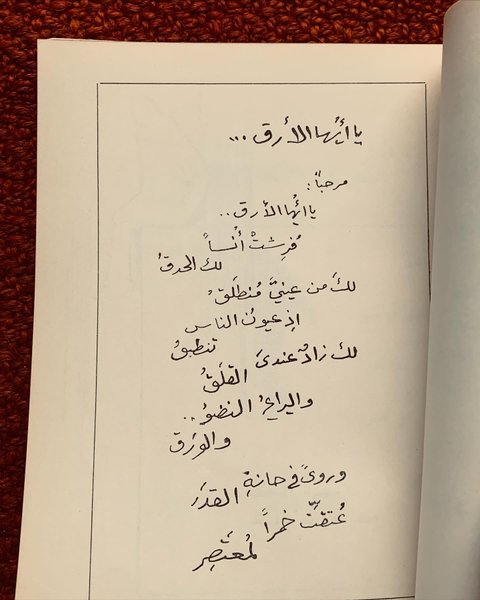 يا أيُّها الأرق ...
مرحباً :
يا أيُّها الأرق ..
فُرِشتْ أُنساً
لك الحدقُ
لكَ من عينيَّ مُنطلَقُ
اذ عيونُ الناس
تنطبقُ
لك زادٌ عندىَ القلَقُ
واليراعُ النضوُ ..
والورَق
وروىً في حانةِ القدَر
عُتقتّْ خمراً
لمُعتَصِر